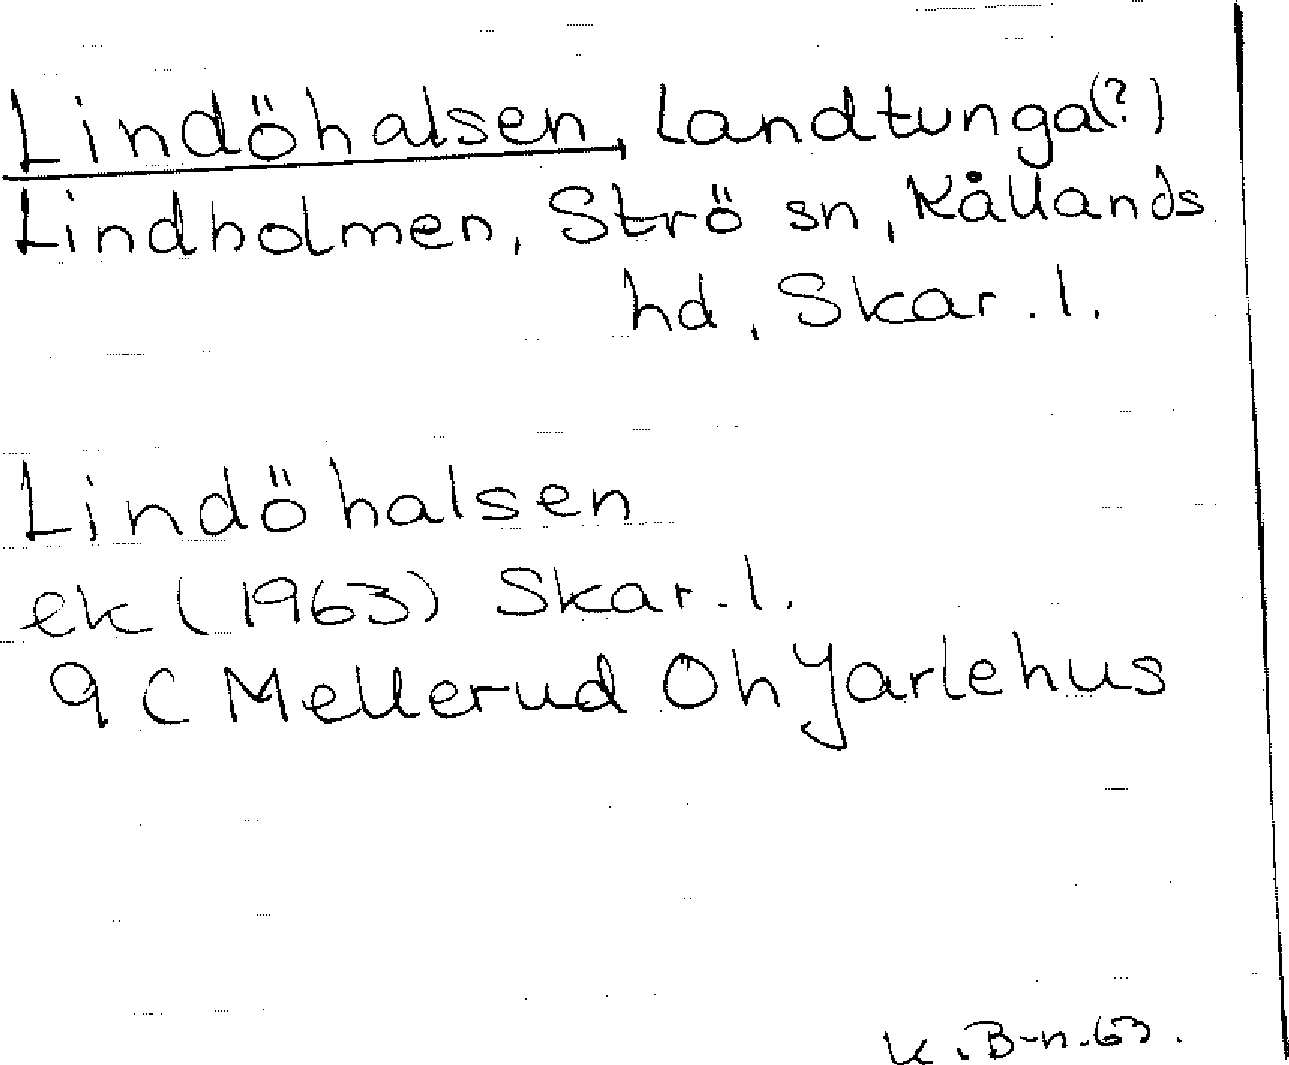 Lindöhalsen, Landtunga(?)
Lindholmen, Strö sn, Kållands
hd, Skar. l.
Lindöhalsen
ek (1963) Skar. l.
9 C Mellerud Öh Jarlehus
K. B-n. 63.